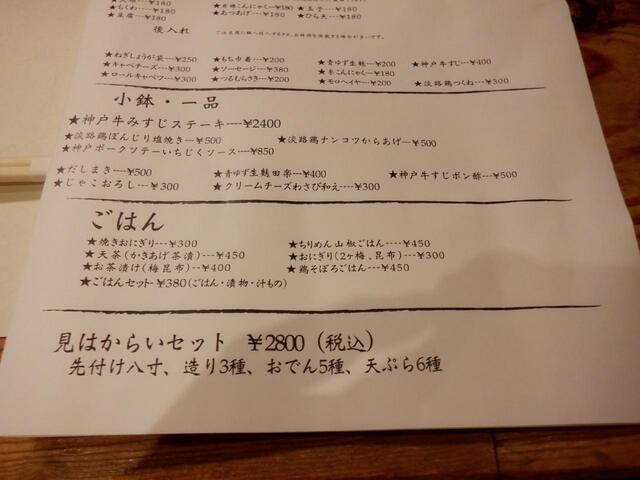 ★ちくわ---¥180 ★あつあげ---¥180 ★ひら天---¥180
★豆腐---¥180
後入れ
★ねぎしょうが袋---¥250 ★もち巾着---¥200 ★青ゆず生麩---¥200 ★神戸牛すじ---¥400
★キャベチーズ---¥300 ★ソーセージ---¥380 ★糸こんにゃく---¥180
★ロールキャベツ---¥300 ★つるむらさき---¥200 ★モロヘイヤ---¥200 ★淡路鶏つくね---¥300
小鉢・一品
★神戸牛みすじステーキ----¥2400
★淡路鶏ぼんじり塩焼き---¥500 ★淡路鶏ナンコツからあげ---¥500
★神戸ポークソテーいちじくソース---¥850
★だしまき---¥500 ★青ゆず生麩田楽---¥400 ★神戸牛すじポン酢---¥500
★じゃこおろし---¥300 ★クリームチーズわさび和え---¥300
ごはん
★焼きおにぎり---¥300 ★ちりめん山椒ごはん----¥450
★天茶(かきあげ茶漬)---¥450 ★おにぎり(2ヶ梅、昆布)---¥300
★お茶漬け(梅昆布)---¥400 ★鶏そぼろごはん---¥450
★ごはんセット-¥380(ごはん・漬物・汁もの)
見はからいセット ¥2800(税込)
先付け八寸、造り3種、おでん5種、天ぷら6種